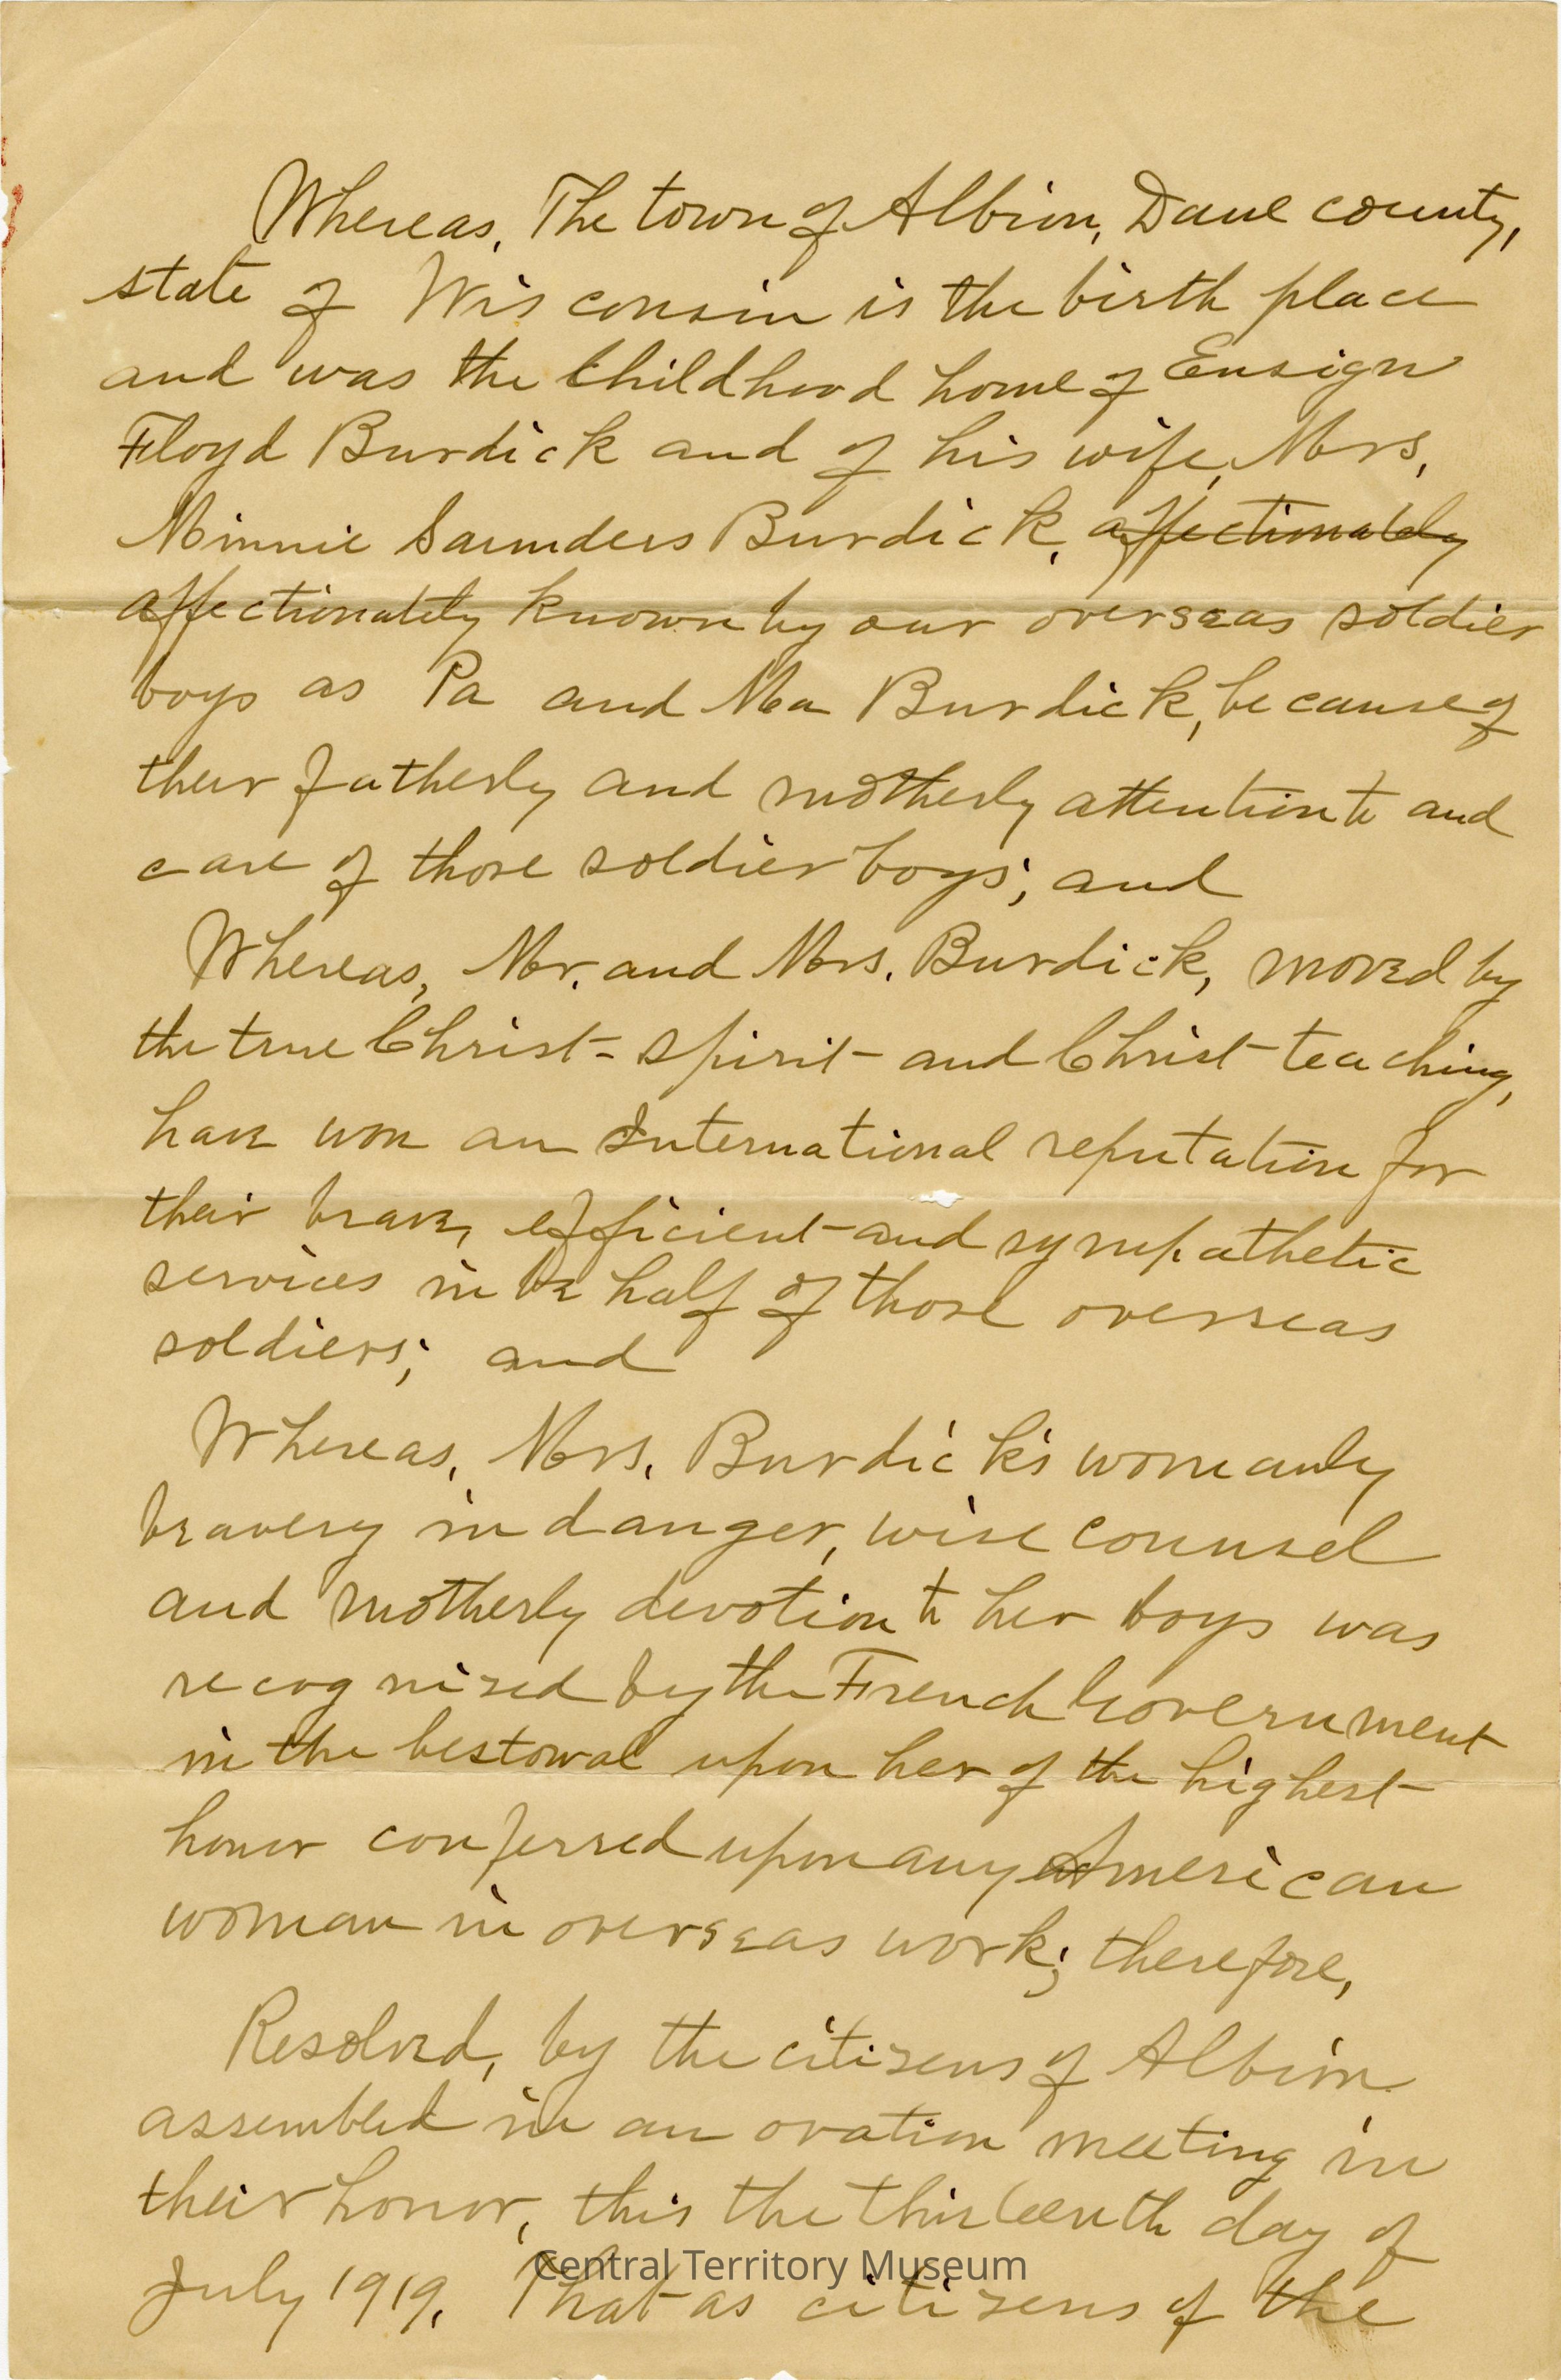 Whereas, The town of Albion, Dane county,
state of Wisconsin is the birth place
and was the Childhood home of Ensign
Floyd Burdick and of his wife, Mrs,
Minnie Saunders Burdick, affectionately
affectionately known by our overseas soldier
boys as Pa and Ma Burdick, because of
their fatherly and motherly attention to and
care of those soldier boys; and
Whereas, Mr. and Mrs. Burdick, moved by
the true Christ-spirit and Christ teaching,
have won an International reputation for
their brave, efficient and sympathetic
services in behalf of those overseas
soldiers; and
Whereas, Mrs. Burdick's womanly
bravery in danger, wise counsel
and motherly devotion to her boys was
recognized by the French Government
in the bestowal upon her of the highest
honor conferred upon any American
woman in overseas work; therefore,
Resolved, by the citizens of Albion
assembled in an ovation meeting in
their honor, this the thirteenth day of
July 1919. That as citizens of the
Central Territory Museum